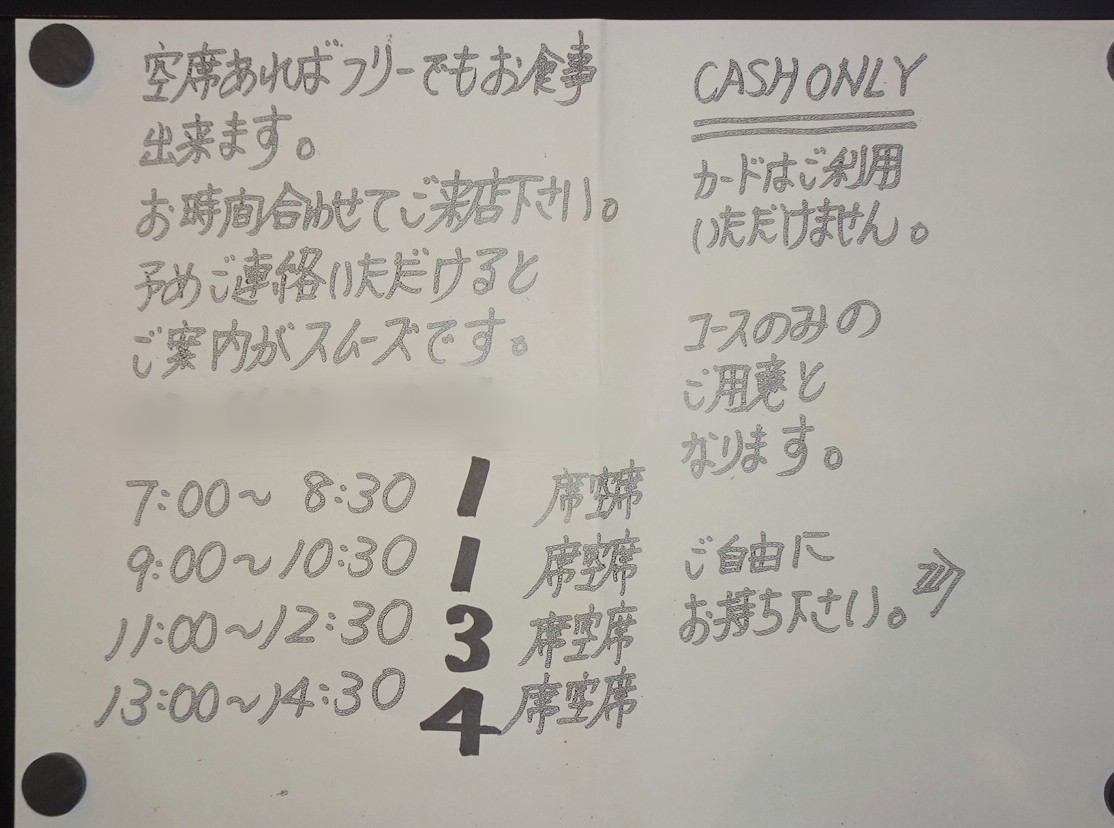 空席あればフリーでもお食事
出来ます。
お時間合わせてご来店下さい。
予めご連絡いただけると
ご案内がスムーズです。
7:00〜 8:30 1 席空席
9:00〜10:30 1 席空席
11:00〜12:30 3 席空席
13:00〜14:30 4 席空席
CASH ONLY
カードはご利用
いただけません。
コースのみの
ご用意と
なります。
ご自由に
お持ち下さい。